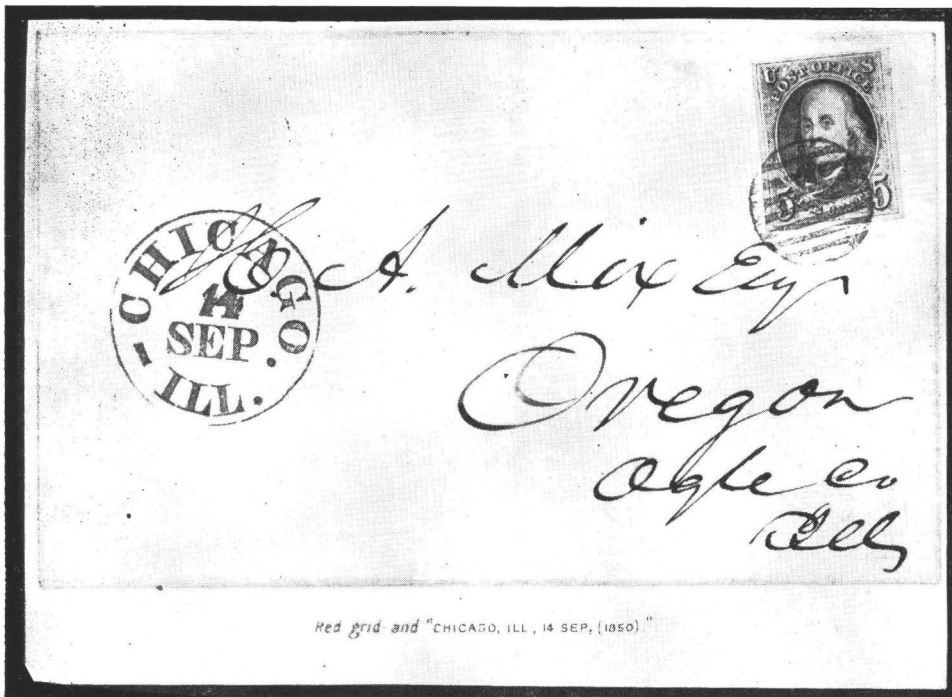 U S
POST OFFICE
5 5
CHICAGO.
14
SEP.
ILL.
A. Mix Esqr
Oregon
Ogle Co
Ills
Red grid and "CHICAGO, ILL., 14 SEP, (1850)."